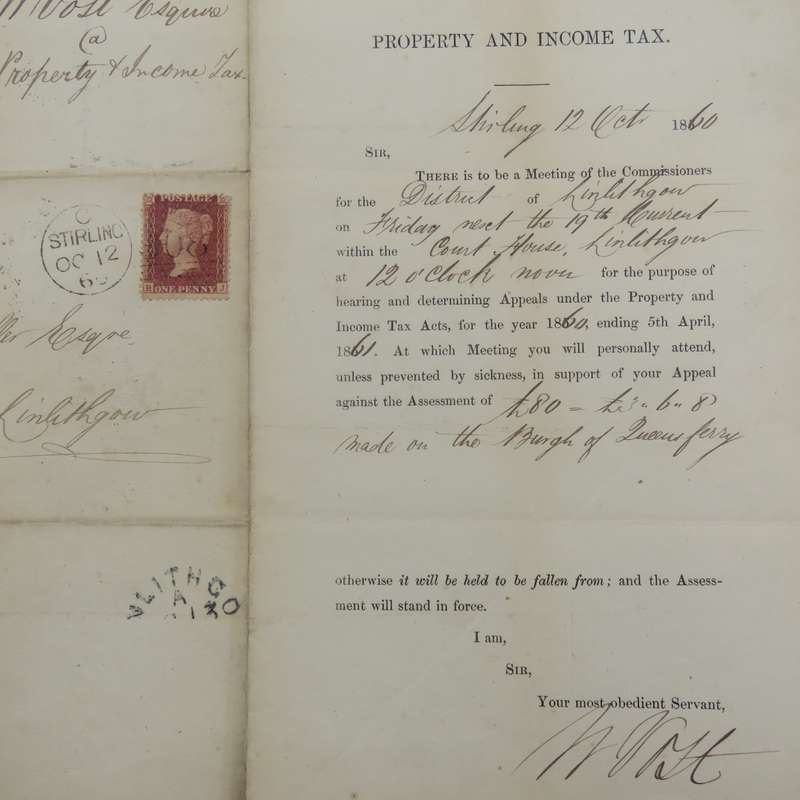 Vost Esquire
@
Property & Income Tax
POSTAGE
ONE PENNY
C
STIRLING
OC 12
60
Esqre
Linlithgow
LITHGO
A
PROPERTY AND INCOME TAX.
Stirling 12 Oct 1860
SIR,
THERE is to be a Meeting of the Commissioners
for the District of Linlithgow
on Friday next the 19th Current
within the Court House, Linlithgow
at 12 o'Clock noon for the purpose of
hearing and determining Appeals under the Property and
Income Tax Acts, for the year 1860, ending 5th April,
1861. At which Meeting you will personally attend,
unless prevented by sickness, in support of your Appeal
against the Assessment of £80 = £3 " 6 " 8
made on the Burgh of Queensferry
otherwise it will be held to be fallen from; and the Assess-
ment will stand in force.
I am,
SIR,
Your most obedient Servant,
W Vost